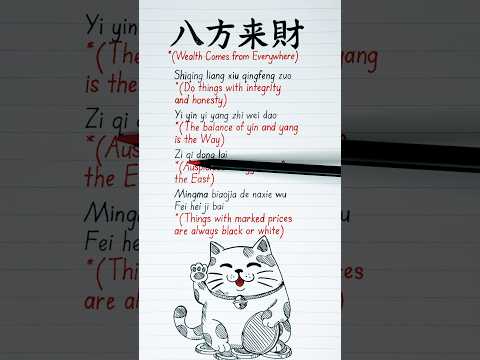 八方来財
*(Wealth Comes from Everywhere)
Shiqing liang xiu qingfeng zuo
*(Do things with integrity
and honesty)
Yi yin yi yang zhi wei dao
*(The balance of yin and yang
is the Way)
Zi qi dong lai
the East)
Mingma biaojia de naxie wu
Fei hei ji bai
*(Things with marked prices
are always black or white)